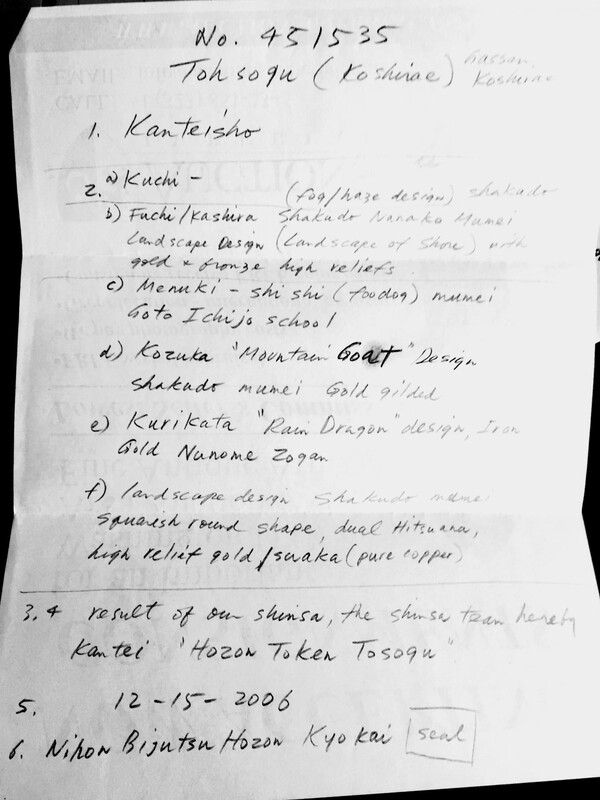 No. 451535
Tohsogu (Koshirae) Gassan Koshirae
1. Kanteisho
2. a) Kuchi - (fog/haze design) shakudo
b) Fuchi/Kashira Shakudo Nanako Mumei
Landscape Design (Landscape of Shore) with
gold & bronze high reliefs
c) Menuki - shishi (foodog) mumei
Goto Ichijo school
d) Kozuka "Mountain Goat" Design
shakudo mumei Gold gilded
e) Kurikata "Rain Dragon" design, Iron
Gold Nunome Zogan
f) landscape design shakudo mumei
squarish round shape, dual Hitsuana,
high relief gold/suaka (pure copper)
3.4 result of our shinsa, the shinsa team hereby
Kantei "Hozon Token Tosogu"
5. 12-15-2006
6. Nihon Bijutsu Hozon Kyokai seal